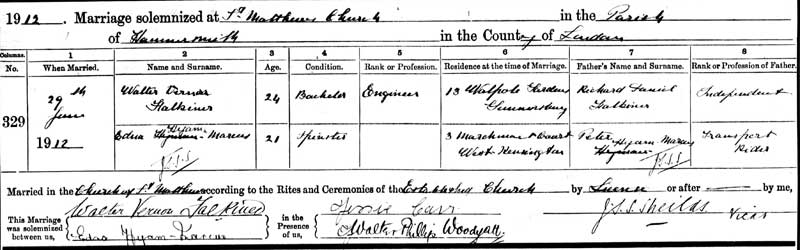 1912. Marriage solemnized at St Matthews Church in the Parish
of Hammersmith in the County of London
Columns. 1 2 3 4 5 6 7 8
No. When Married. Name and Surname. Age. Condition. Rank or Profession. Residence at the time of Marriage. Father's Name and Surname. Rank or Profession of Father.
329
29th June 1912
Walter Vernon Falkiner 24 Bachelor Engineer 13 Walpole Gardens Gunnersbury Richard Daniel Falkiner Independent
Edna Hyam Hyman- Marcus 21 Spinster 3 Marchmount Court West Kensington Peter Hyam Marcus Hyman Transport Rider
J.S.S. J.S.S.
Married in the Church of St Matthew according to the Rites and Ceremonies of the Established Church by Licence or after — by me,
This Marriage was solemnized between us, Walter Vernon Falkiner in the Presence of us, Carr J.S.S. Sheilds Vicar
Edna Hyam-Marcus Walter Phillip Woodyatt